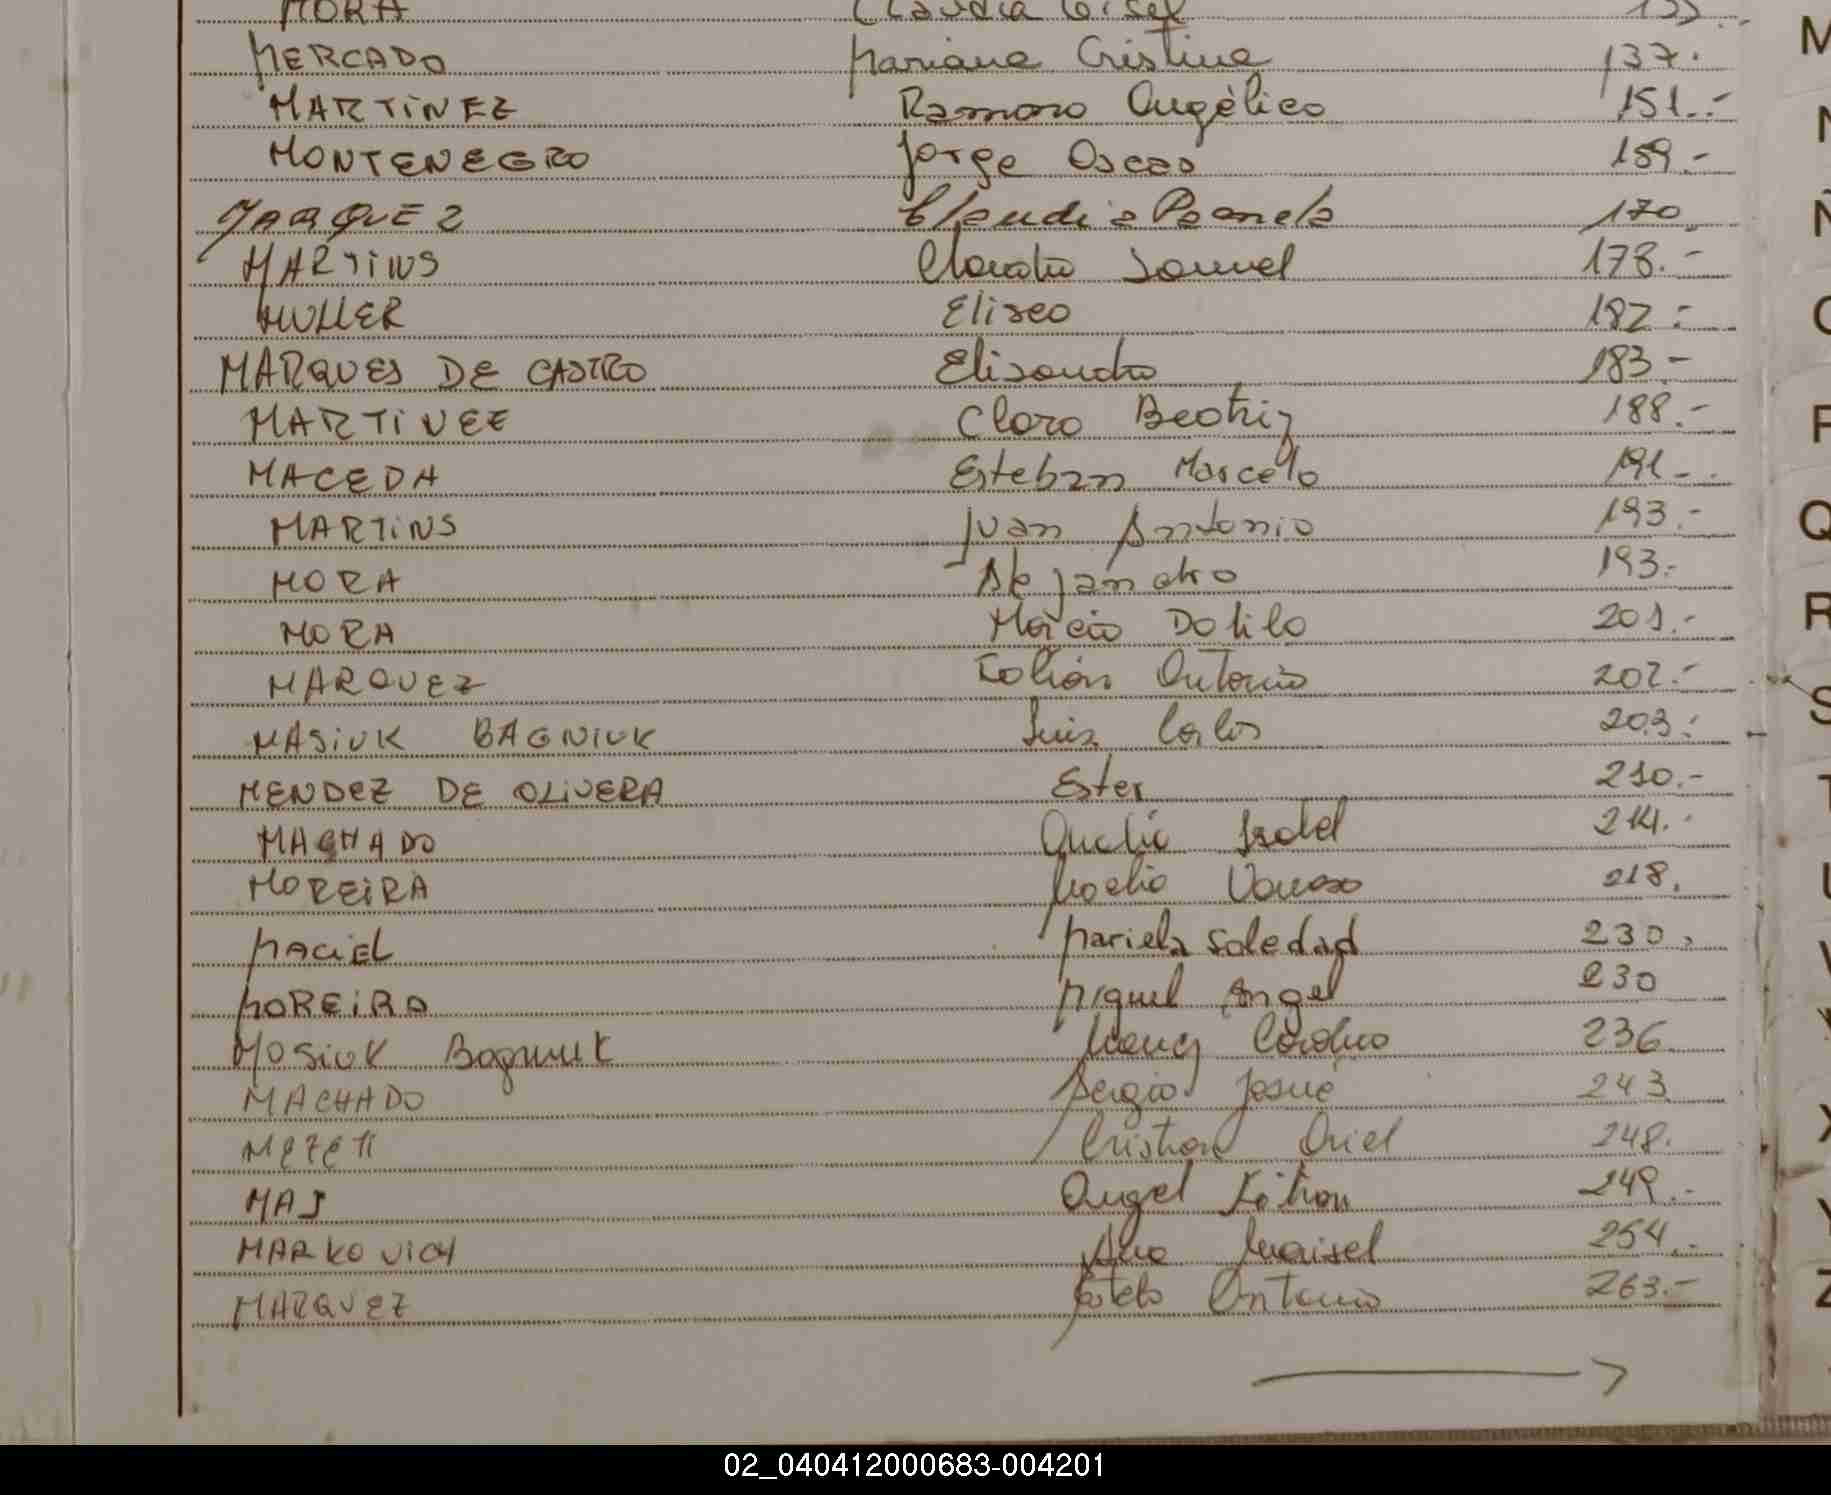 MORA Claudia Gisel 133.-
MERCADO Mariana Cristina 137.
MARTINEZ Ramona Angélica 151.-
MONTENEGRO Jorge Oscar 159.-
MARQUEZ Claudia Pamela 170
MARTINS Claudia Samuel 178.-
MULLER Eliseo 182.-
MARQUES DE CASTRO Elisandra 183-
MARTINEZ Clara Beatriz 188.-
MACEDA Esteban Marcelo 191-
MARTINS Juan Antonio 193.-
MORA Alejandro 193.-
MORA María Dotila 201.-
MARQUEZ Fabián Antonio 202.-
MASIUK BAGNIUK Luis Carlos 203.-
MENDEZ DE OLIVERA Ester 210.-
MACHADO Isabel 214.-
MOREIRA 218.
MACIEL Mariela Soledad 230.
MOREIRA Miguel Angel 230
MOSIUK Bagniuk Nancy 236
MACHADO Sergio Josué 243
MEZETI Cristian Oriel 248.
MAS Angel Fabian 249.-
MARKOVICH Ana Marisel 254.-
MARQUEZ Antonio 263.-
M
N
Ñ
O
P
Q
R
S
T
U
V
Y
X
Y
Z
02_040412000683-004201